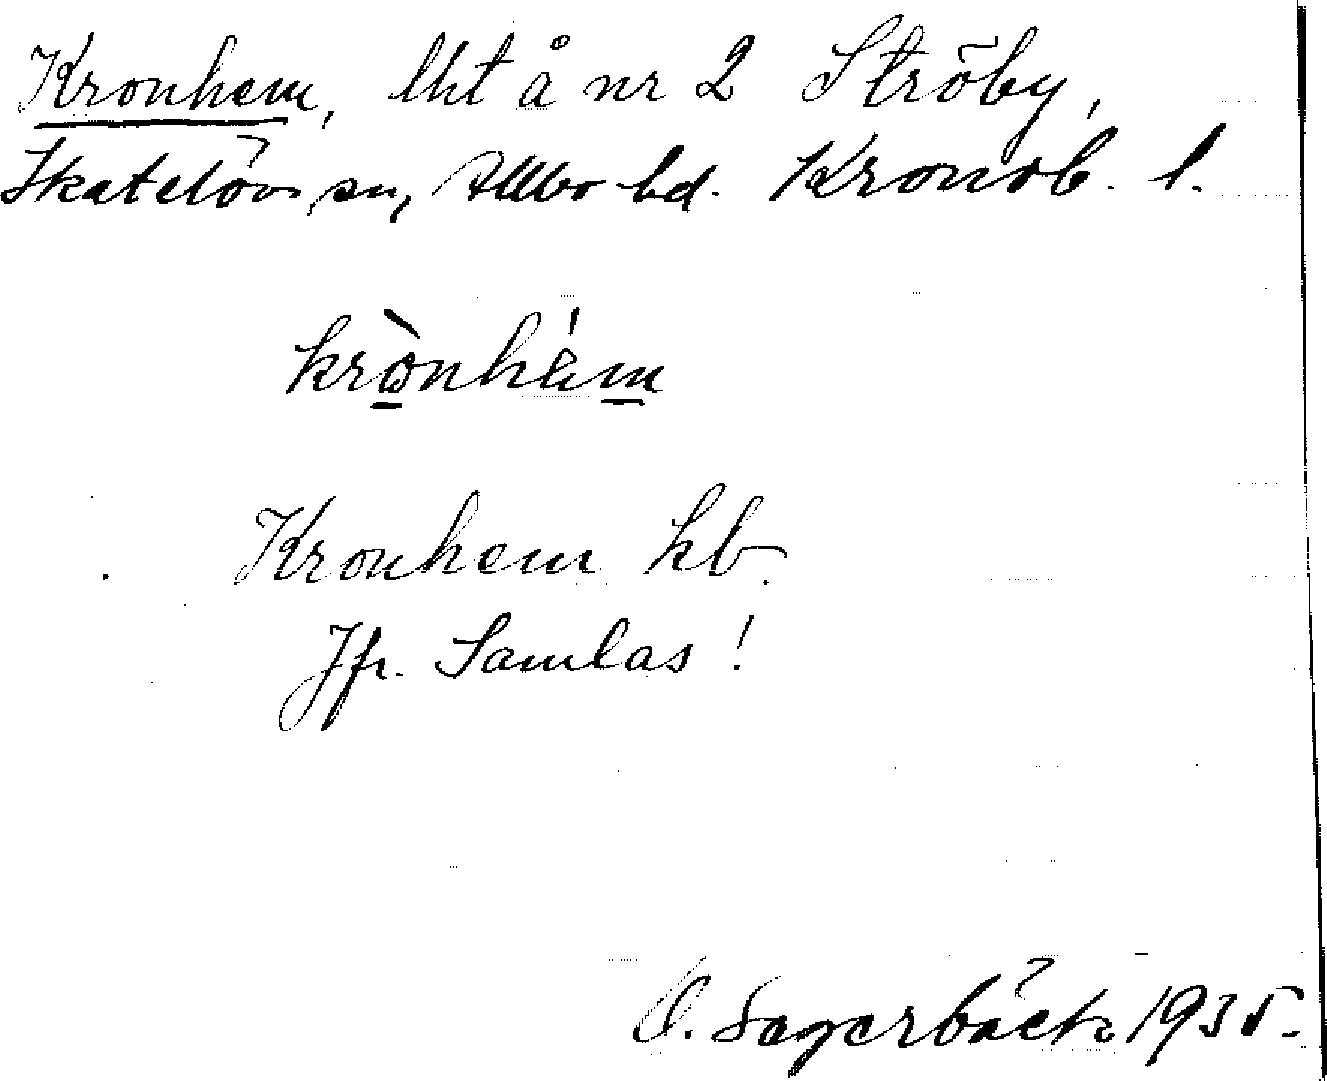 Kronhem, lht å nr 2 Ströby,
Skatelövs sn, Allbo hd. Kronob. l.
krònhém
Kronhem kb.
Jfr. Samlas!
O. Sagerbäck 1935.